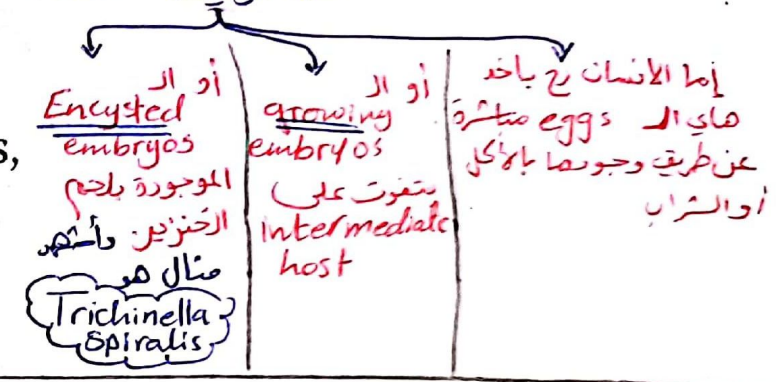 إما الانسان رح ياخد
هاي الـ eggs مباشرة
عن طريق وجودها بالأكل
أو الشراب
أو الـ
growing
embryos
بتفوت على
intermediate
host
أو الـ
Encysted
embryos
الموجودة بلحم
الخنزير وأشهر
مثال هو
Trichinella
Spiralis